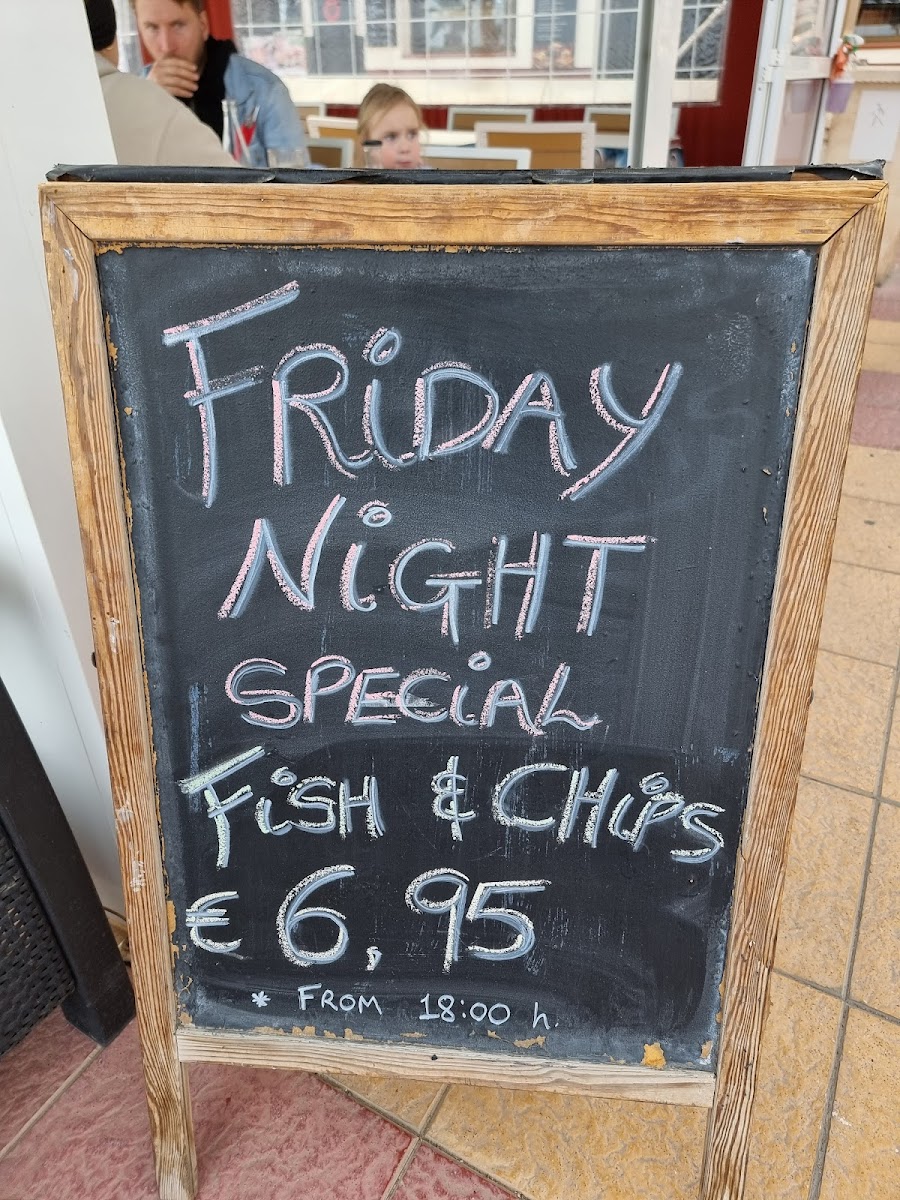 FRiDAY
NiGHT
SPECiAL
FiSH & CHiPS
€ 6,95
* FROM 18:00 h.